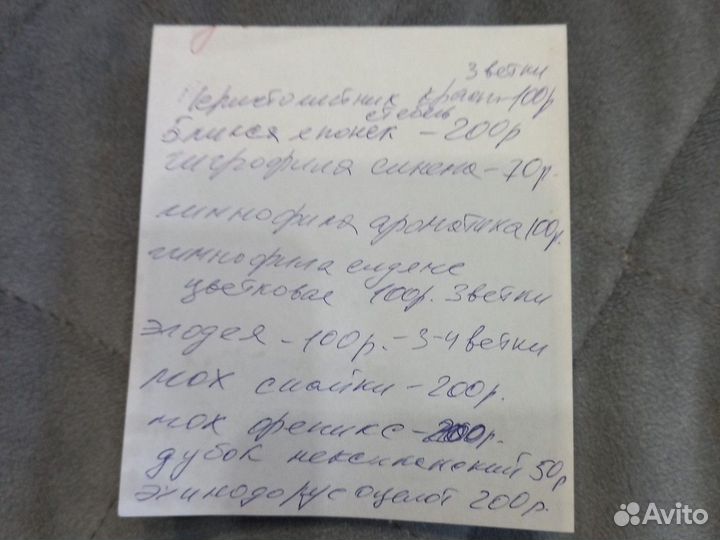 3 ветки
Перистолистник красн. - 100р
стебель
бликса японск - 200р
гигрофила сиамена - 70р.
лимнофила ароматика 100р.
лимнофила сидяче
цветковая 100р. 3 ветки
элодея - 100р. - 3-4 ветки
мох спайки - 200р.
мох феникс - 200р.
дубок мексиканский 50р
эхинодорус оцелот 200р.
Avito